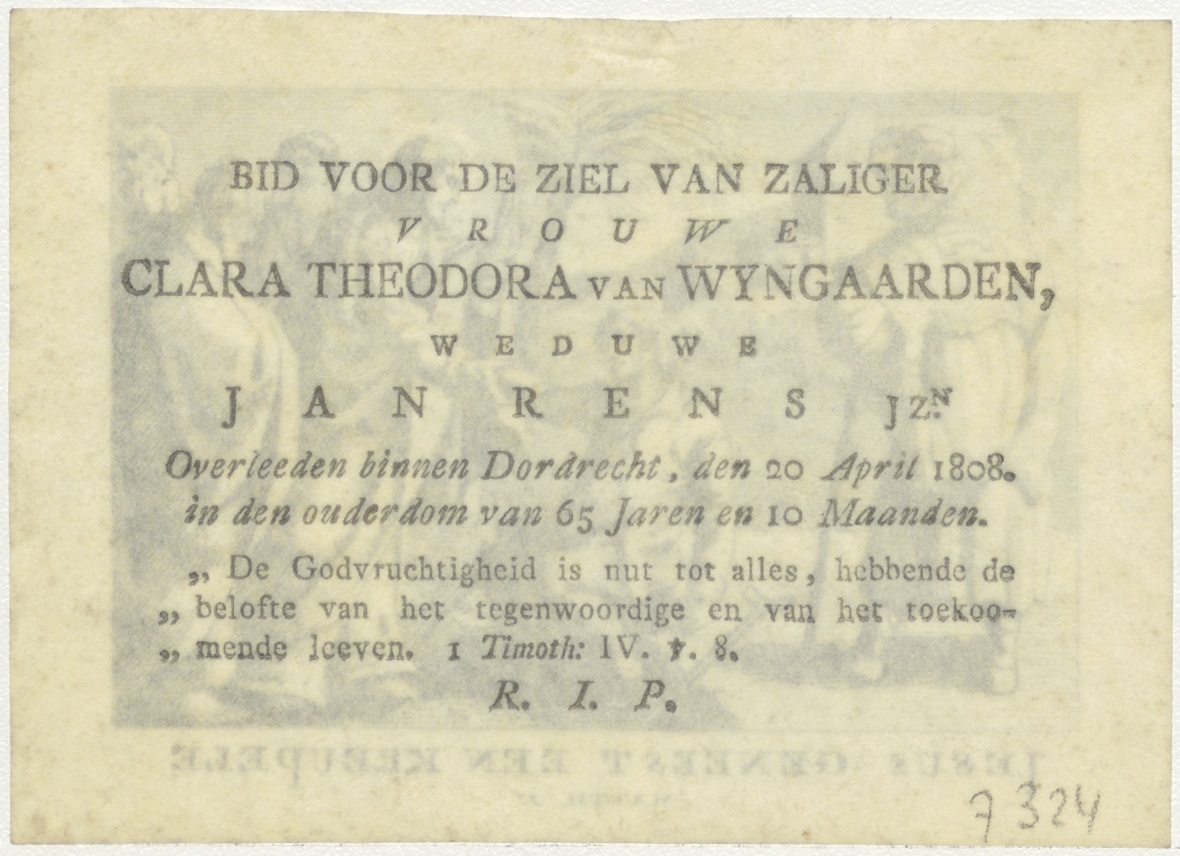 BID VOOR DE ZIEL VAN ZALIGER
VROUWE
CLARA THEODORA VAN WYNGAARDEN,
WEDUWE
JAN RENS JZN.
Overleeden binnen Dordrecht, den 20 April 1808.
in den ouderdom van 65 Jaren en 10 Maanden.
„ De Godvruchtigheid is nut tot alles, hebbende de
„ belofte van het tegenwoordige en van het toekoo-
„ mende leeven. 1 Timoth: IV. ℣. 8.
R. I. P.
IESUS GENEEST EEN KREUPELE
7324